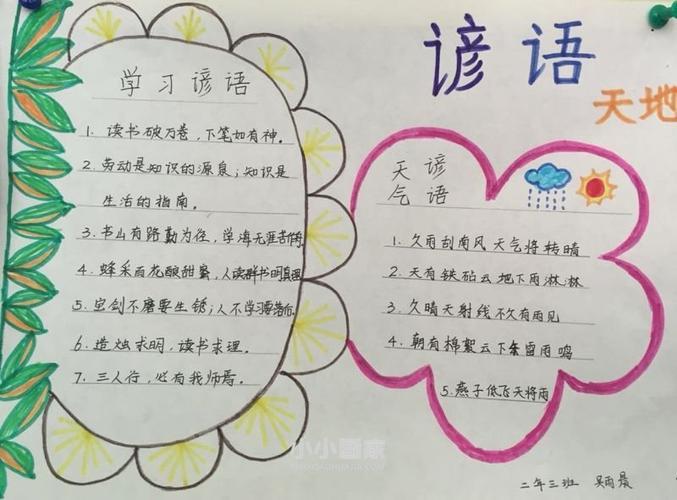 谚语
天地
学习谚语
1. 读书破万卷，下笔如有神。
2. 劳动是知识的源泉；知识是
生活的指南。
3. 书山有路勤为径，学海无涯苦作舟
4. 蜂采百花酿甜蜜，人读群书明真理
5. 宝剑不磨要生锈；人不学习要落后
6. 造烛求明，读书求理。
7. 三人行，必有我师焉。
天气
谚语
1. 久雨刮南风 天气将转晴
2. 天有铁砧云 地下雨淋淋
3. 久晴天射线 不久有雨见
4. 朝有棉絮云 下午雷雨鸣
5. 燕子低飞天将雨
二年三班 吴雨晨
小小画家